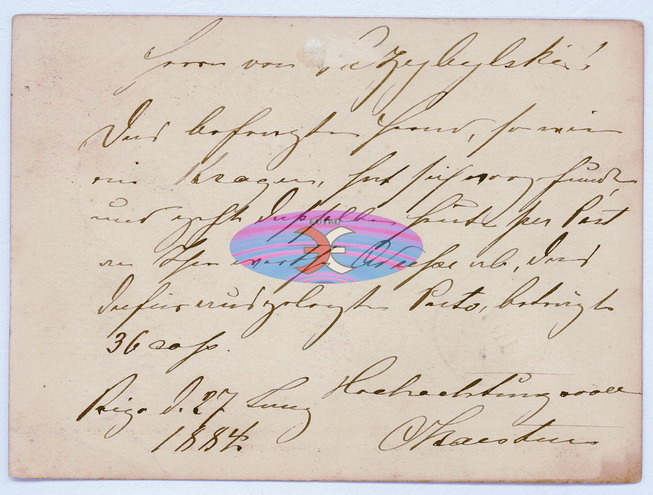 Herrn von Przybylski!
Das befragte Hemd, so wie
ein Kragen, hat sich vorgefunden
und geht dasselbe heute per Post
an Ihre werthe Adresse ab, das
dafür ausgelegte Porto, beträgt
36 Cop.
Riga d. 27 Juny
1884.
Hochachtungsvoll